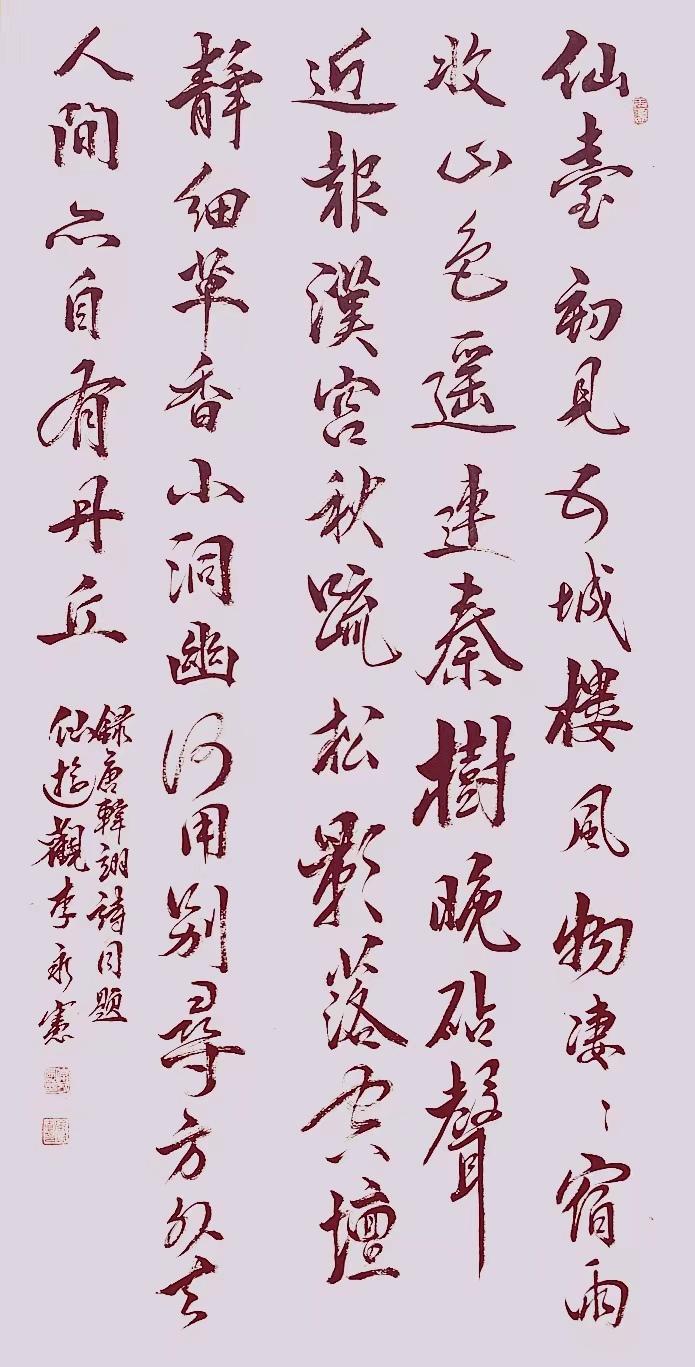 仙臺初見五城樓風物凄〻宿雨
收山色遥連秦樹晚砧聲
近報漢宮秋疏松影落空壇
靜細草香小洞幽何用別尋方外去
人間亦自有丹丘
錄唐韓翃詩同題
仙遊觀李永憲